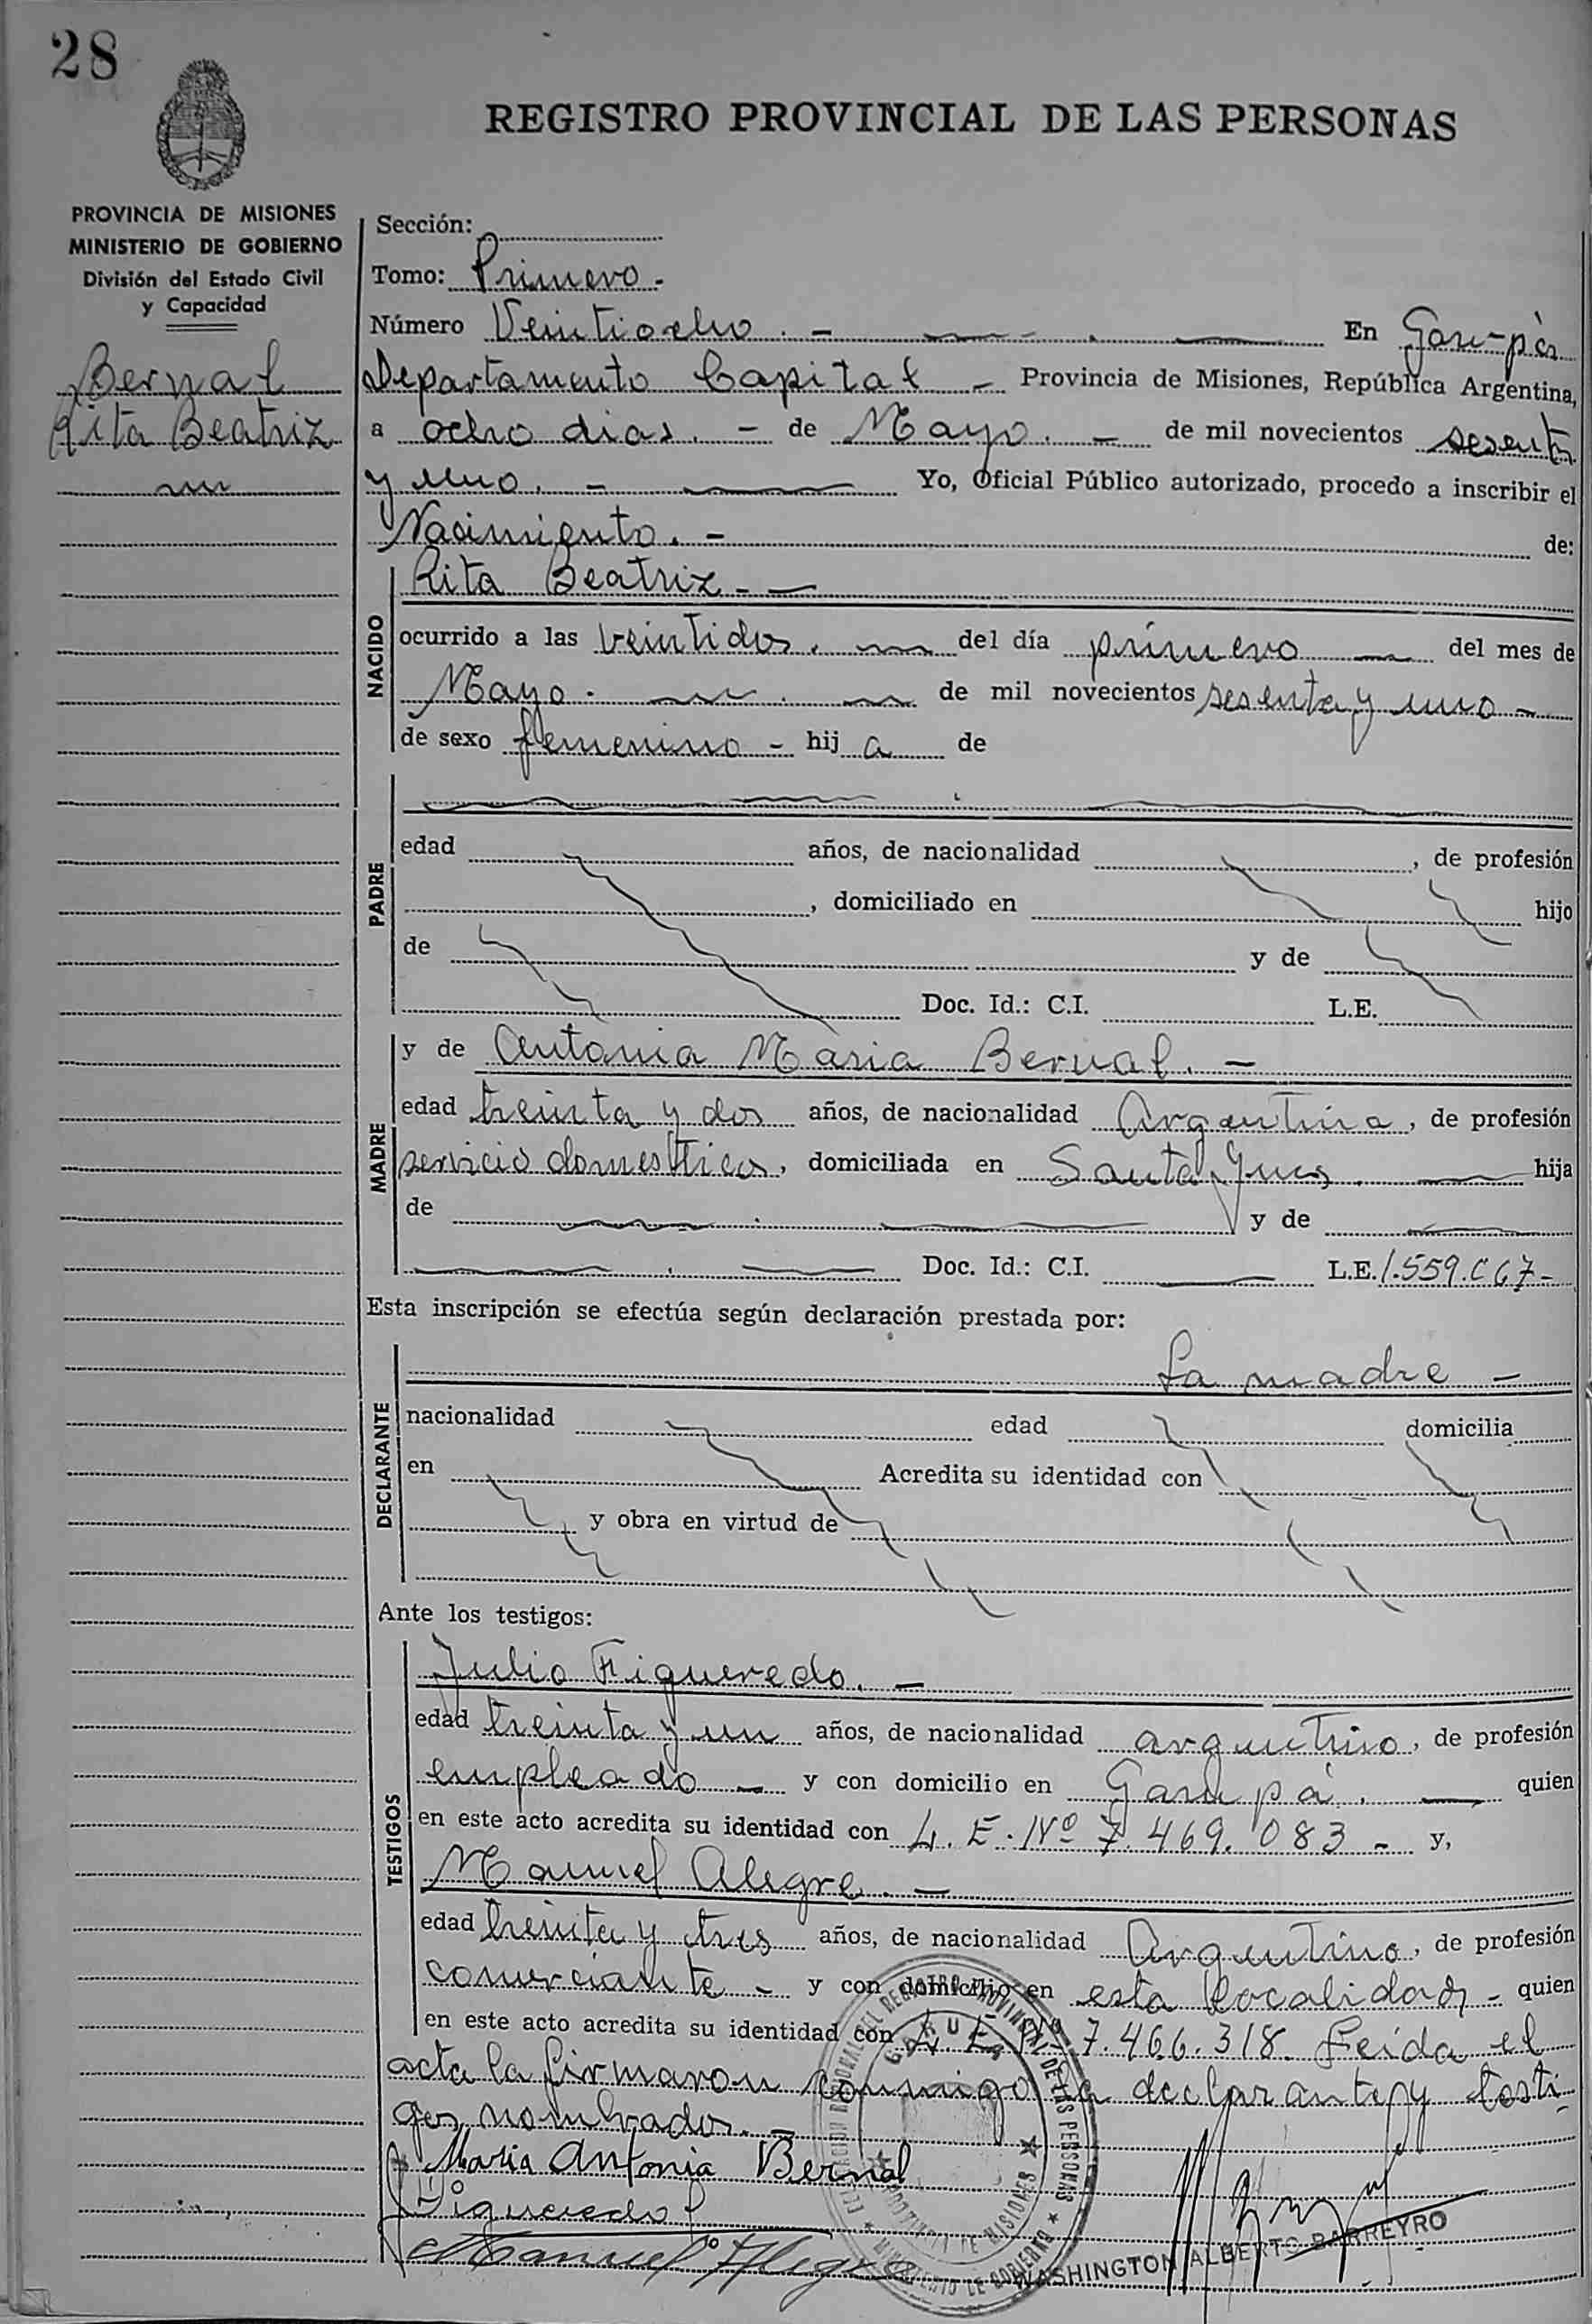 28
REGISTRO PROVINCIAL DE LAS PERSONAS
PROVINCIA DE MISIONES
MINISTERIO DE GOBIERNO
División del Estado Civil
y Capacidad
Bernal
Rita Beatriz
Sección:
Tomo: Primero.
Número Veintiocho. - En Garu-pá
Departamento Capital - Provincia de Misiones, República Argentina,
a ocho dias. - de Mayo. - de mil novecientos sesenta
y uno. - Yo, Oficial Público autorizado, procedo a inscribir el
Nacimiento. - de:
NACIDO
Rita Beatriz - -
ocurrido a las veintidos. del día primero del mes de
Mayo. de mil novecientos sesenta y uno -
de sexo femenino - hij a de
PADRE
edad años, de nacionalidad , de profesión
, domiciliado en hijo
de y de
Doc. Id.: C.I. L.E.
MADRE
y de Antonia Maria Bernal. -
edad treinta y dos años, de nacionalidad Argentina, de profesión
servicio domestico, domiciliada en Santa Ines. hija
de y de
Doc. Id.: C.I. L.E. 1.559.067-
Esta inscripción se efectúa según declaración prestada por:
DECLARANTE
La madre -
nacionalidad edad domicilia
en Acredita su identidad con
y obra en virtud de
Ante los testigos:
TESTIGOS
Julio Figueredo. -
edad treinta y un años, de nacionalidad argentino, de profesión
empleado - y con domicilio en Garupá. quien
en este acto acredita su identidad con L. E. Nº 7.469.083 - y,
Manuel Alegre. -
edad treinta y tres años, de nacionalidad Argentino, de profesión
comerciante - y con domicilio en esta localidad - quien
en este acto acredita su identidad con L. E. Nº 7.466.318. Leida el
acta la firmaron conmigo la declarante y testi-
gos nombrados. -
Maria Antonia Bernal
Figueredo J
Manuel Alegre
WASHINGTON ALBERTO BARREYRO
DEL REGISTRO PROVINCIAL DE LAS PERSONAS
GARUPA
PROVINCIA DE MISIONES
MINISTERIO DE GOBIERNO